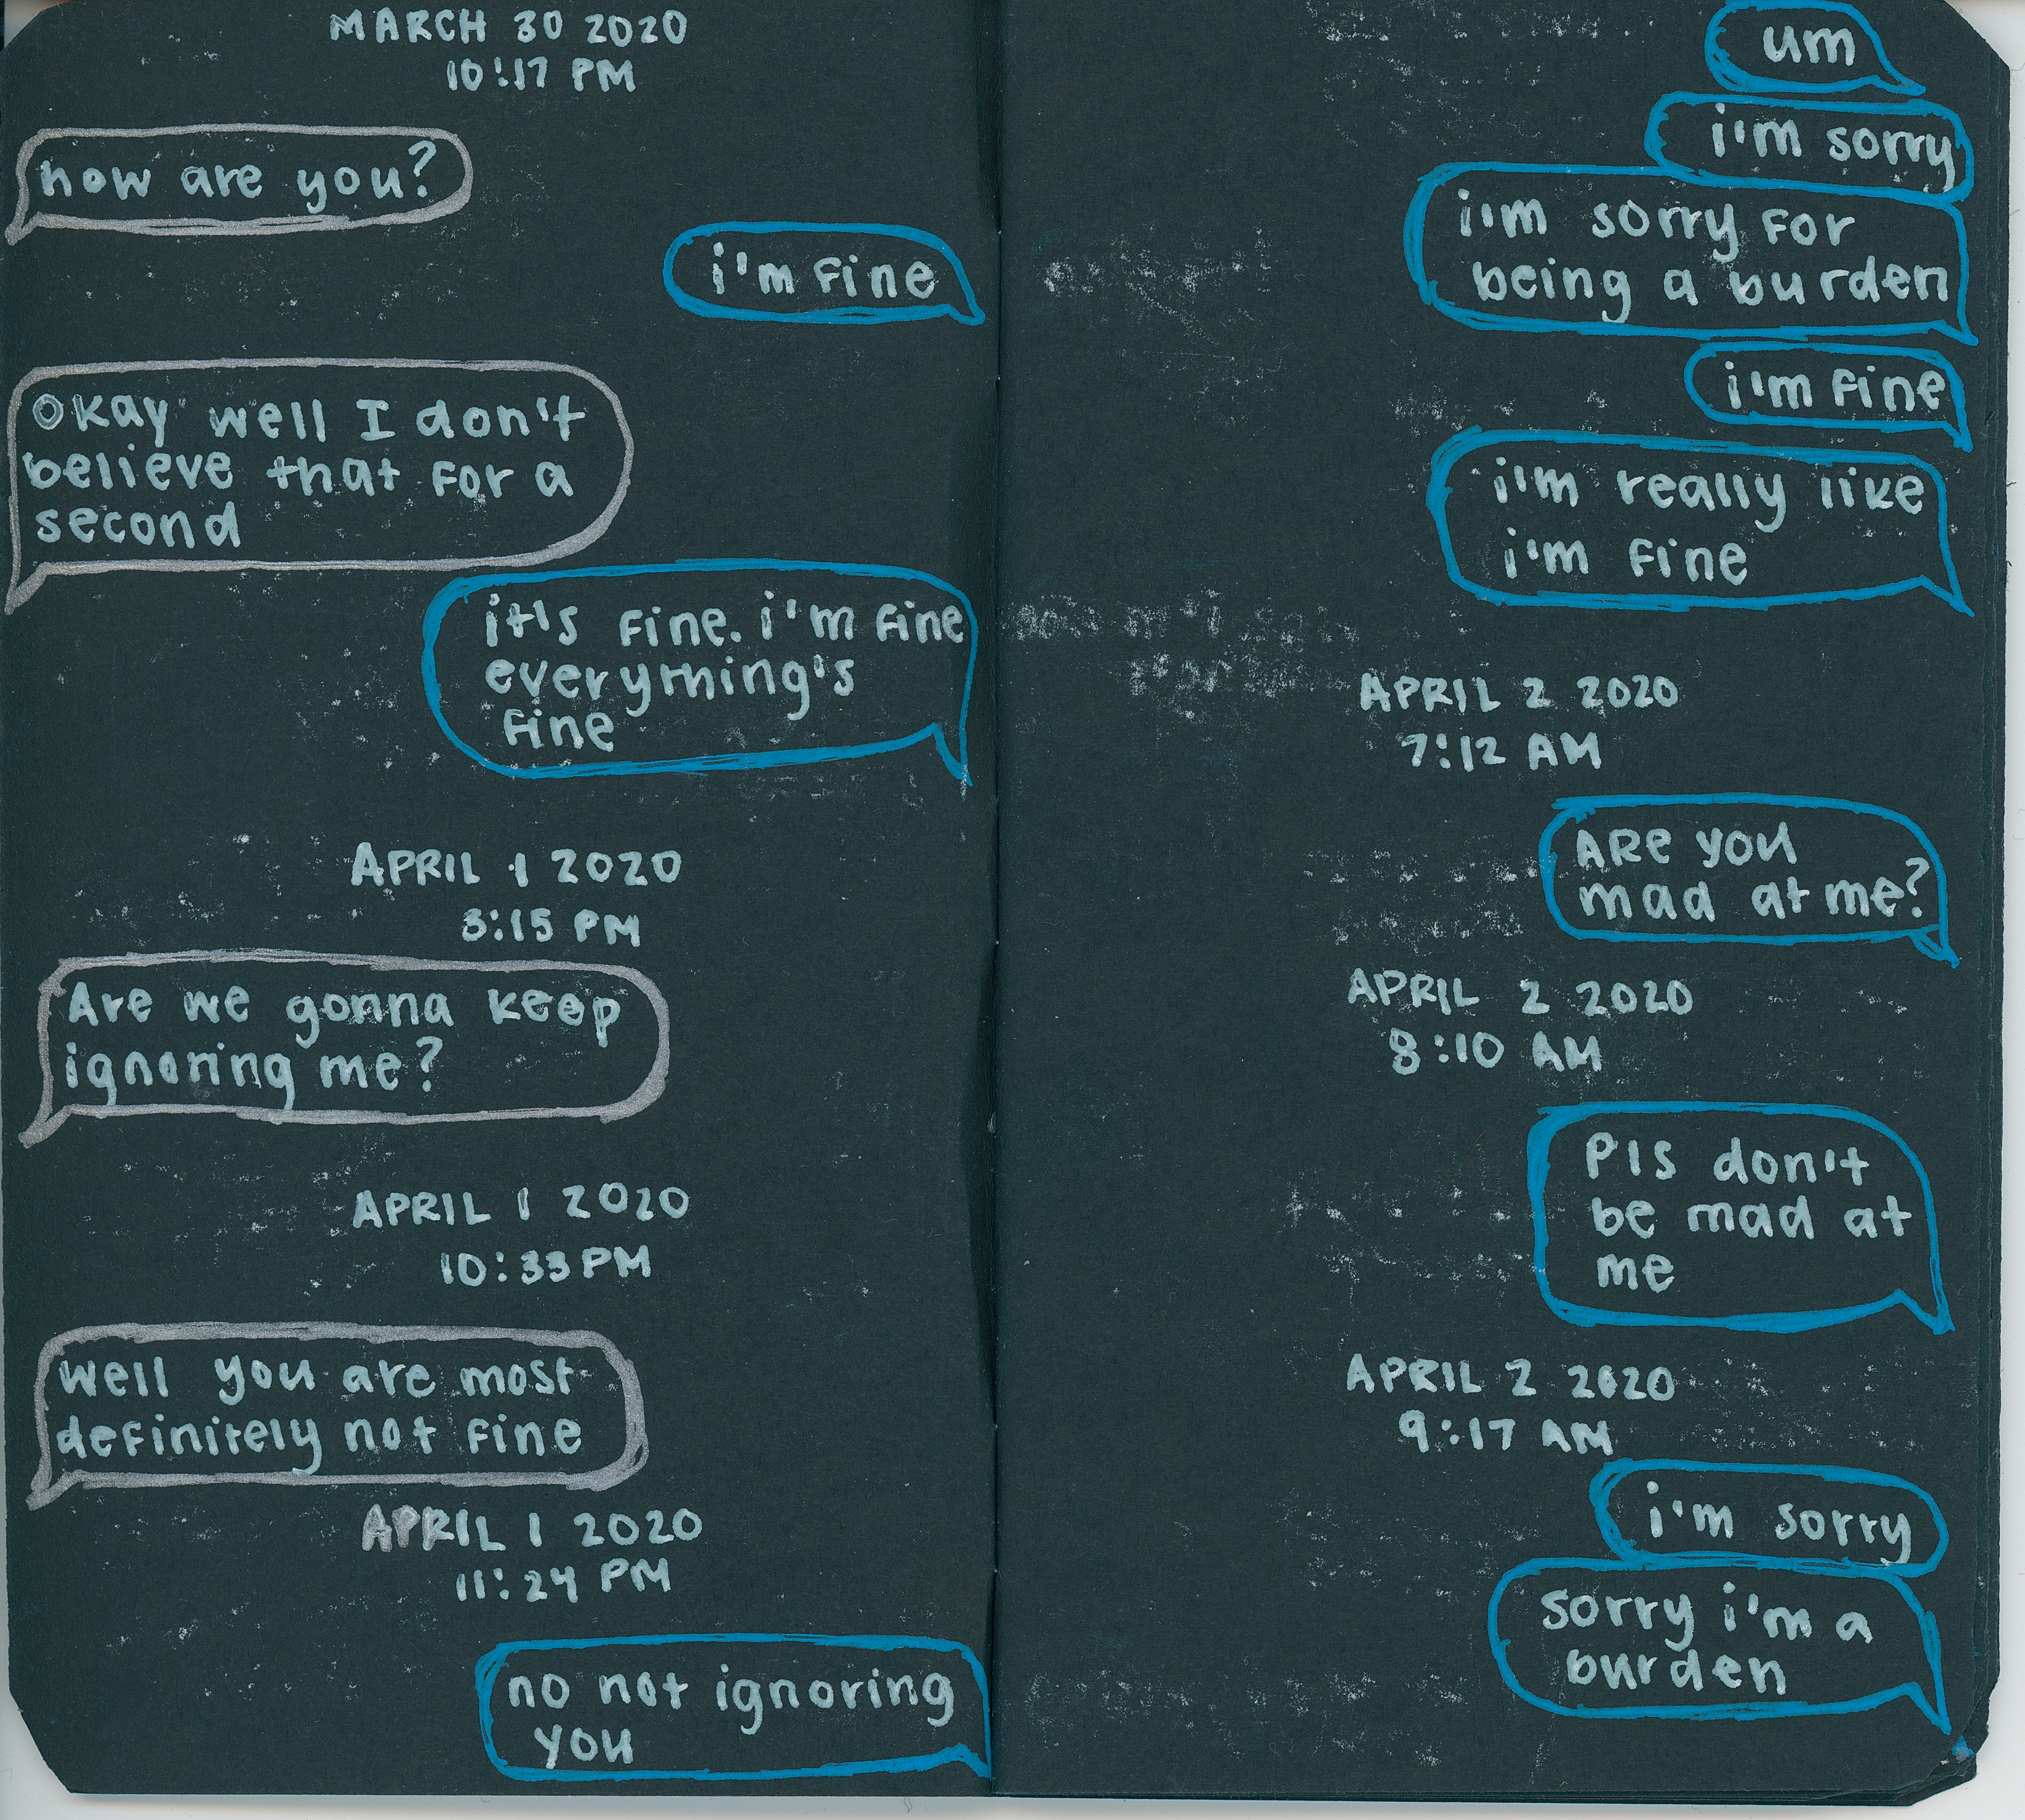 MARCH 30 2020
10:17 PM
how are you?
i'm fine
Okay well I don't
believe that for a
second
it's fine. i'm fine
everything's
fine
APRIL 1 2020
3:15 PM
Are we gonna keep
ignoring me?
APRIL 1 2020
10:33 PM
well you are most
definitely not fine
APRIL 1 2020
11:24 PM
no not ignoring
you
um
i'm sorry
i'm sorry for
being a burden
i'm fine
i'm really like
i'm fine
APRIL 2 2020
7:12 AM
ARe you
mad at me?
APRIL 2 2020
8:10 AM
Pls don't
be mad at
me
APRIL 2 2020
9:17 AM
i'm sorry
sorry i'm a
burden